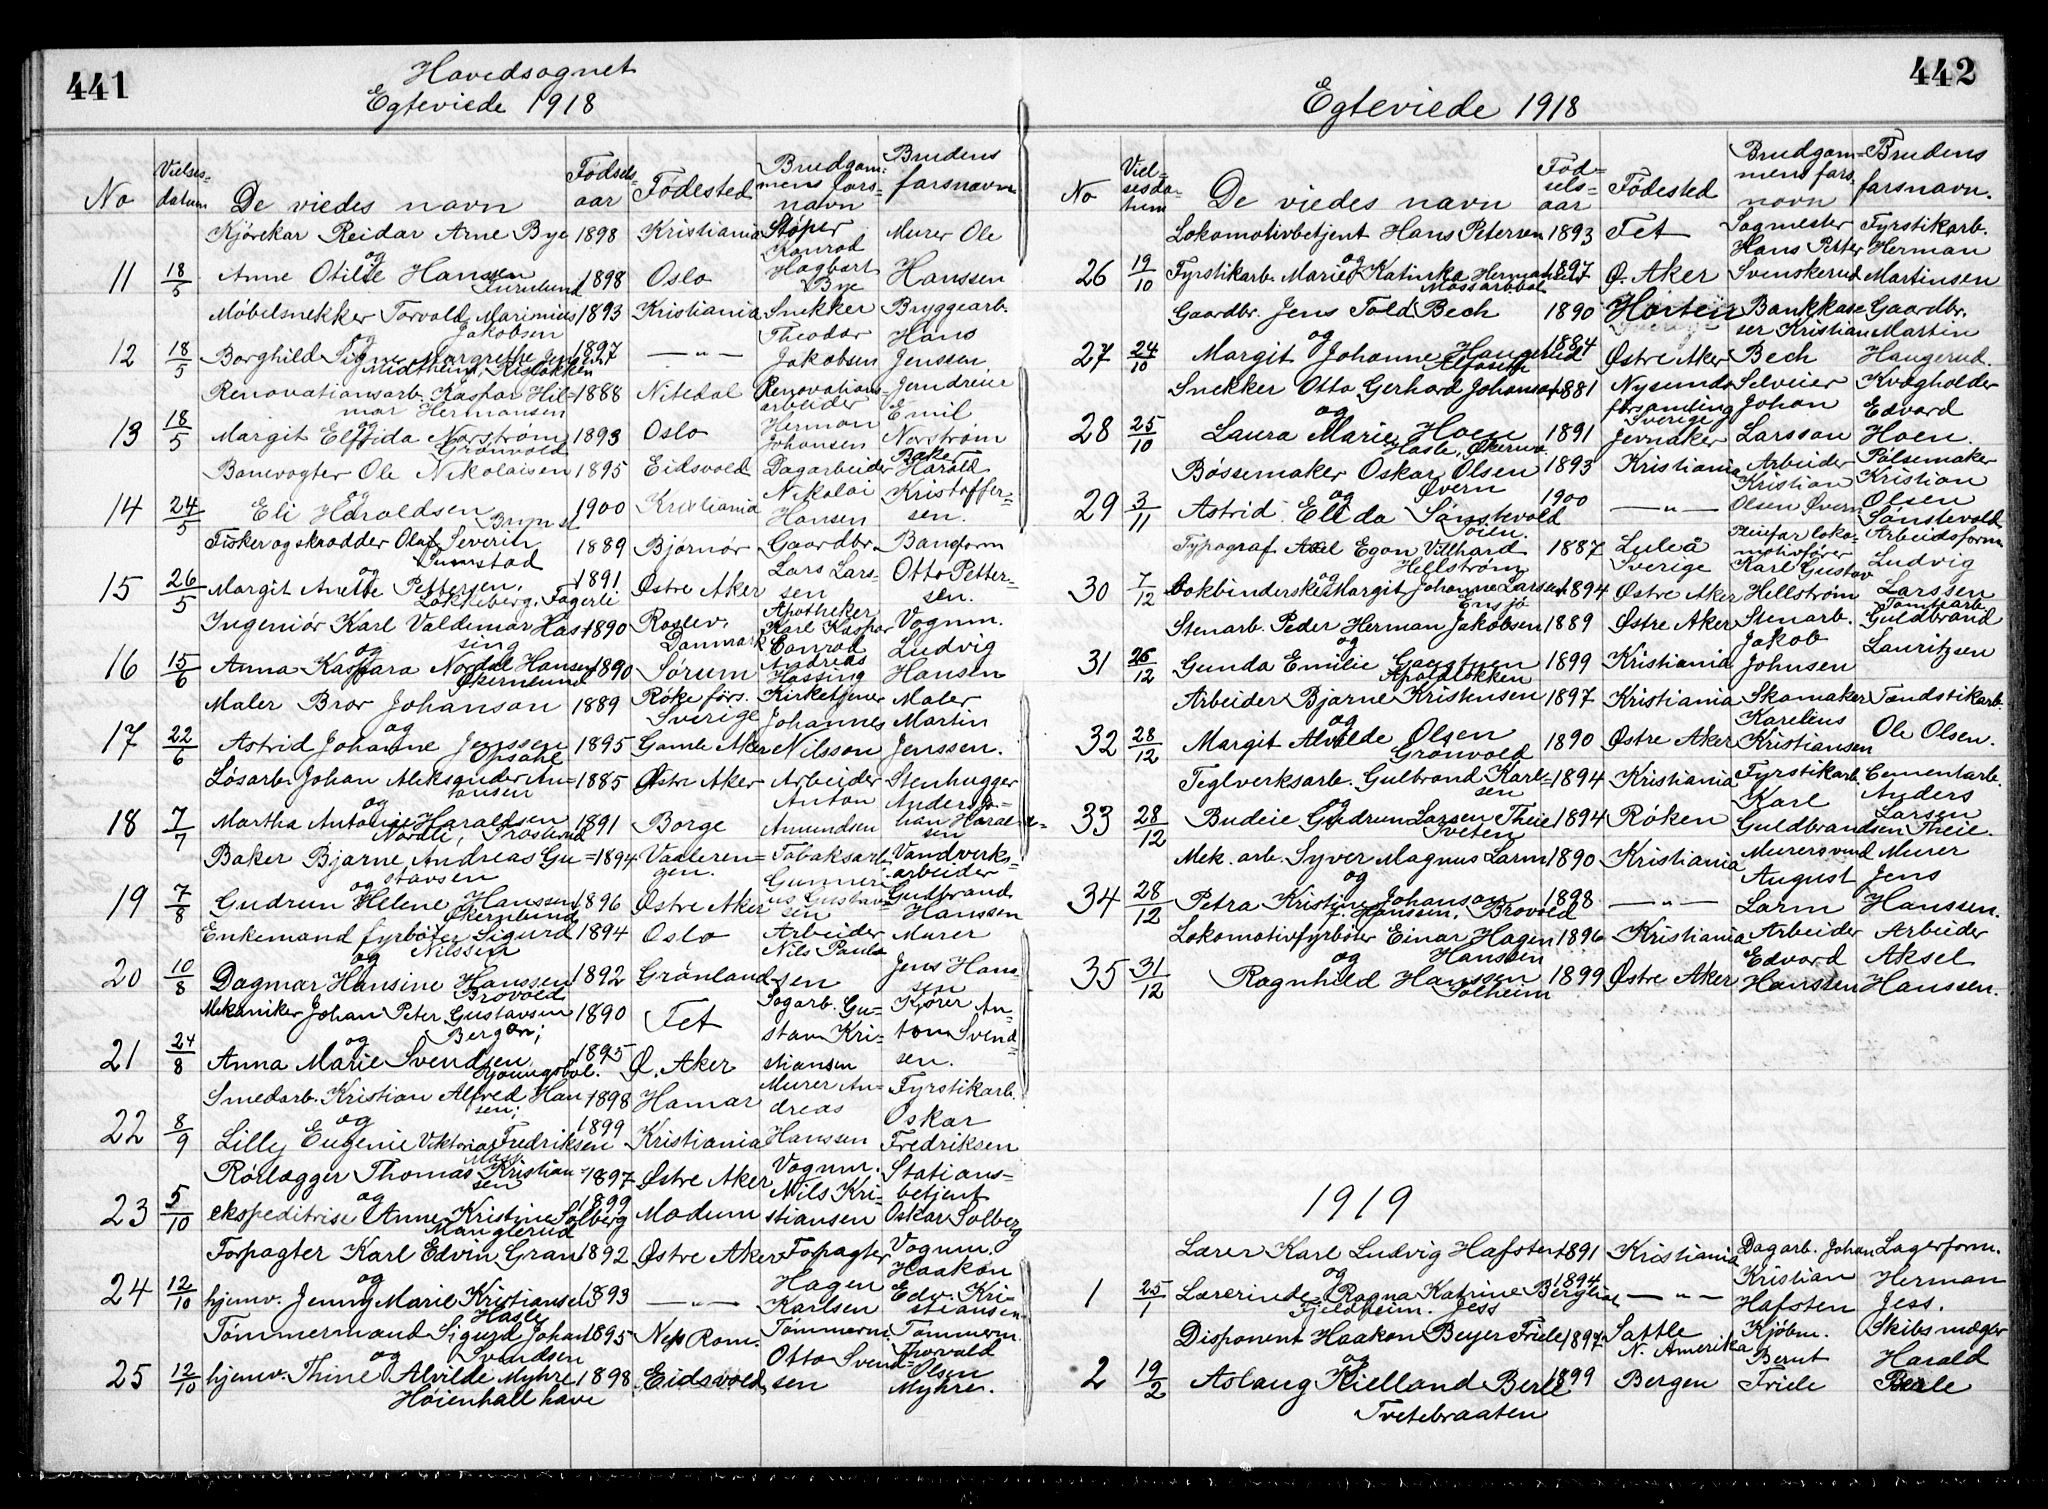 441
Hovedsognet
Egteviede 1918
No Vielsesdatum De viedes navn Fødselsaar Fødested Brudgommens farsnavn Brudens farsnavn
Kjørekar Reidar Arne Bye 1898 Kristiania Støper Konrad Hagbart Bye Murer Ole Hanssen
11 18/5 og Anne Otilie Hanssen 1898 Oslo
Møbelsnekker Torvald Marinius Jakobsen 1893 Kristiania Snekker Theodor Jakobsen Bryggearb. Hans Jenssen
12 18/5 og Borghild Signe Margrethe Jenssen 1897 — „ —
Renovationsarb. Kaspar Hilmar Hermansen 1888 Nitedal Renovationsarbeider Herman Johansen Jendreier Emil Norstrøm
13 18/5 og Margit Elfrida Norstrøm Grønvold 1893 Oslo
Banevogter Ole Nikolaisen 1895 Eidsvold Dagarbeider Nikolai Hansen Baker Harald Kristoffersen.
14 24/5 og Eli Haroldsen Brynst. 1900 Kristiania
Fisker og skrædder Olaf Severin 1889 Bjørnør Gaardbr. Lars Larssen Baneform Otto Pettersen.
15 26/5 og Margit Anette Pettersen, Løkkeberg, Fagerli 1891 Østre Aker
Ingeniør Karl Valdemar Hassing 1890 Roslev, Danmark Apotheker Karl Kaspar Conrad Andreas Hassing Vognm. Ludvig Hansen
16 15/6 og Anna Kaspara Nordal Hansen Økernlund 1890 Sørum
Maler Bror Johanson 1889 Røke førs. Sverige Kirketjener Johannes Nilsson Maler Martin Jenssen.
17 22/6 og Astrid Johanne Jenssen Opsahl 1895 Gamle Aker
Løsarb. Johan Aleksander Antonsen 1885 Østre Aker Arbeider Anton Amundsen Stenhugger Anders Johan Haraldsen
18 7/7 og Martha Antonie Haraldsen Nordli, Prosterud 1891 Borge
Baker Bjarne Andreas Gustavsen 1894 Vaalerengen. Tobaksarb. Gunnerius Gustavsen Vandverksarbeider Gudbrand Hanssen
19 7/8 og Gudrun Helene Hanssen Økernlund 1896 Østre Aker
Enkemand fyrbøter Sigurd Nilssen 1894 Oslo Arbeider Nils Paulsen Murer Jens Hanssen
20 10/8 og Dagmar Hansine Hanssen Brovold 1892 Grønland
Mekaniker Johan Peter Gustavsen Bergan; 1890 Fet Sagarb. Gustav Kristiansen Kjører Anton Svendsen.
21 24/8 og Anna Marie Svendsen 1895 Ø. Aker
Smedarb. Kristian Alfred Hansen; 1898 Hamar Murer Andreas Hanssen Fyrstikarb. Oskar Fredriksen
22 8/9 og Lilly Eugenie Viktoria Fredriksen 1899 Kristiania
Rørlægger Thomas Kristiansen 1897 Østre Aker Vognm. Nils Kristiansen Stationsbetjent Oskar Solberg
23 5/10 ekspeditrise og Anne Kristine Solberg Manglerud 1899 Modum
Forpagter Karl Edvin Gran 1892 Østre Aker Forpagter Hagen Karlsen Vognm. Haakon Edv. Kristiansen
24 12/10 og hjemv. Jenny Marie Kristiansen Hasle 1893 — „ —
Tømmermand Sigurd Johan Svendsen 1895 Nes Rom. Tømmerm. Otto Svendsen Tømmerm. Thorvald Olsen Myhre.
25 12/10 og hjemv. Thine Alvilde Myhre 1898 Eidsvold
Høienhall have
442
Egteviede 1918
No Vielsesdatum De viedes navn Fødselsaar Fødested Brudgommens fars navn Brudens farsnavn.
Lokomotivbetjent Hans Petersen 1893 Fet Sagmester Hans Petter Svenskerud Fyrstikarb. Herman Martinsen
26 19/10 og Fyrstikarb. Marie Katinka Hermansen 1897 Ø. Aker
Gaardbr. Jens Fold Bech 1890 Horten Bankkasser Kristian Bech Gaardbr. Martin Haugerud.
27 24/10 og Margit Johanne Haugerud 1884 Østre Aker
Snekker Otto Gerhard Johanson 1881 Nysunds forsamling Sverige Selveier Johan Larsson Kvægholder Edvard Hoen.
28 25/10 og Laura Marie Hoen Hasle, Økernv. 1891 Jevnaker
Bøssemaker Oskar Olsen Øvern 1893 Kristiania Arbeider Kristian Olsen Øvern Pølsemaker Kristian Olsen Sønstevold
29 3/11 og Astrid Ellida Sønstevold 1900 — „ —
Typograf Axel Egon Villhard Hellstrøm 1887 Luleå Sverige Pleiefar lokomotivfører Karl Gustav Hellstrøm Arbeidsform Ludvig Larssen
30 7/12 Bokbinderske og Margit Johanne Larssen Ensjø 1894 Østre Aker
Stenarb. Peder Herman Jakobsen 1889 Østre Aker Stenarb. Jakob Johnsen Tomtearb. Guldbrand Lauritzen
31 26/12 og Gunda Emilie Apalløkken 1899 Kristiania
Arbeider Bjarne Kristensen 1897 Kristiania Skomaker Karelius Kristiansen Tændstikarb. Ole Olsen.
32 28/12 og Margit Alvilde Olsen Grønvold 1890 Østre Aker
Teglverksarb. Gulbrand Karlsen 1894 Kristiania Fyrstikarb. Karl Guldbrandsen Cementarb. Anders Larsen Theie.
33 28/12 og Budeie Gudrun Larsen Theie Tveten 1894 Røken
Mek. arb. Syver Magnus Larm 1890 Kristiania Murersvend August Larm Murer Jens Hanssen.
34 28/12 og Petra Kristine Johanson f. Hanssen, Brovold 1898 — „ —
Lokomotivfyrbøter Einar Hagen Hansen 1896 Kristiania Arbeider Edvard Hansen Arbeider Aksel Hanssen.
35 31/12 og Ragnhild Hanssen Solheim 1899 Østre Aker
1919
Lærer Karl Ludvig Hafsten 1891 Kristiania Dagarb. Johan Kristian Hafsten Lagerform. Herman Jess.
1 25/1 og Lærerinde Ragna Katrine Bergliot Jess Fjeldheim. 1894 — „ —
Disponent Haakon Beyer Friele 1897 Sattle N. Amerika Kjøbm. Bernt Friele Skibsmægler Harald Berle
2 19/2 og Aslaug Kielland Berle 1899 Bergen
Tvetebraaten